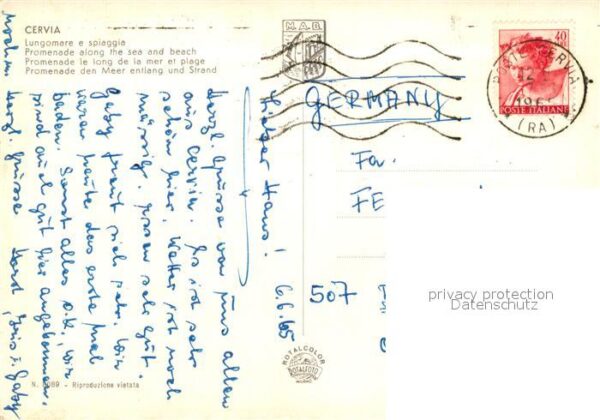 CERVIA
Lungomare e spiaggia
Promenade along the sea and beach
Promenade le long de la mer et plage
Promenade den Meer entlang und Strand
M.A.B.
40
POSTE ITALIANE
CERVIA
(RA)
GERMANY
Fa.
FE
507
6.6.65
Lieber Hans!
Herzl. Grüsse von uns allen
aus Cervia. Es ist sehr
schön hier. Wetter ist noch
mässig. Essen sehr gut.
Gaby freut sich sehr. Wir
waren heute das erste Mal
baden. Sonst alles o.k. Wir
sind auch gut hier angekommen.
Nochm. herzl. Grüsse Horst, Iris u. Gaby
privacy protection
Datenschutz
ROTALCOLOR
ROTALFOTO
MILANO
Riproduzione vietata